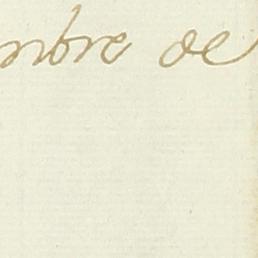 mbre de